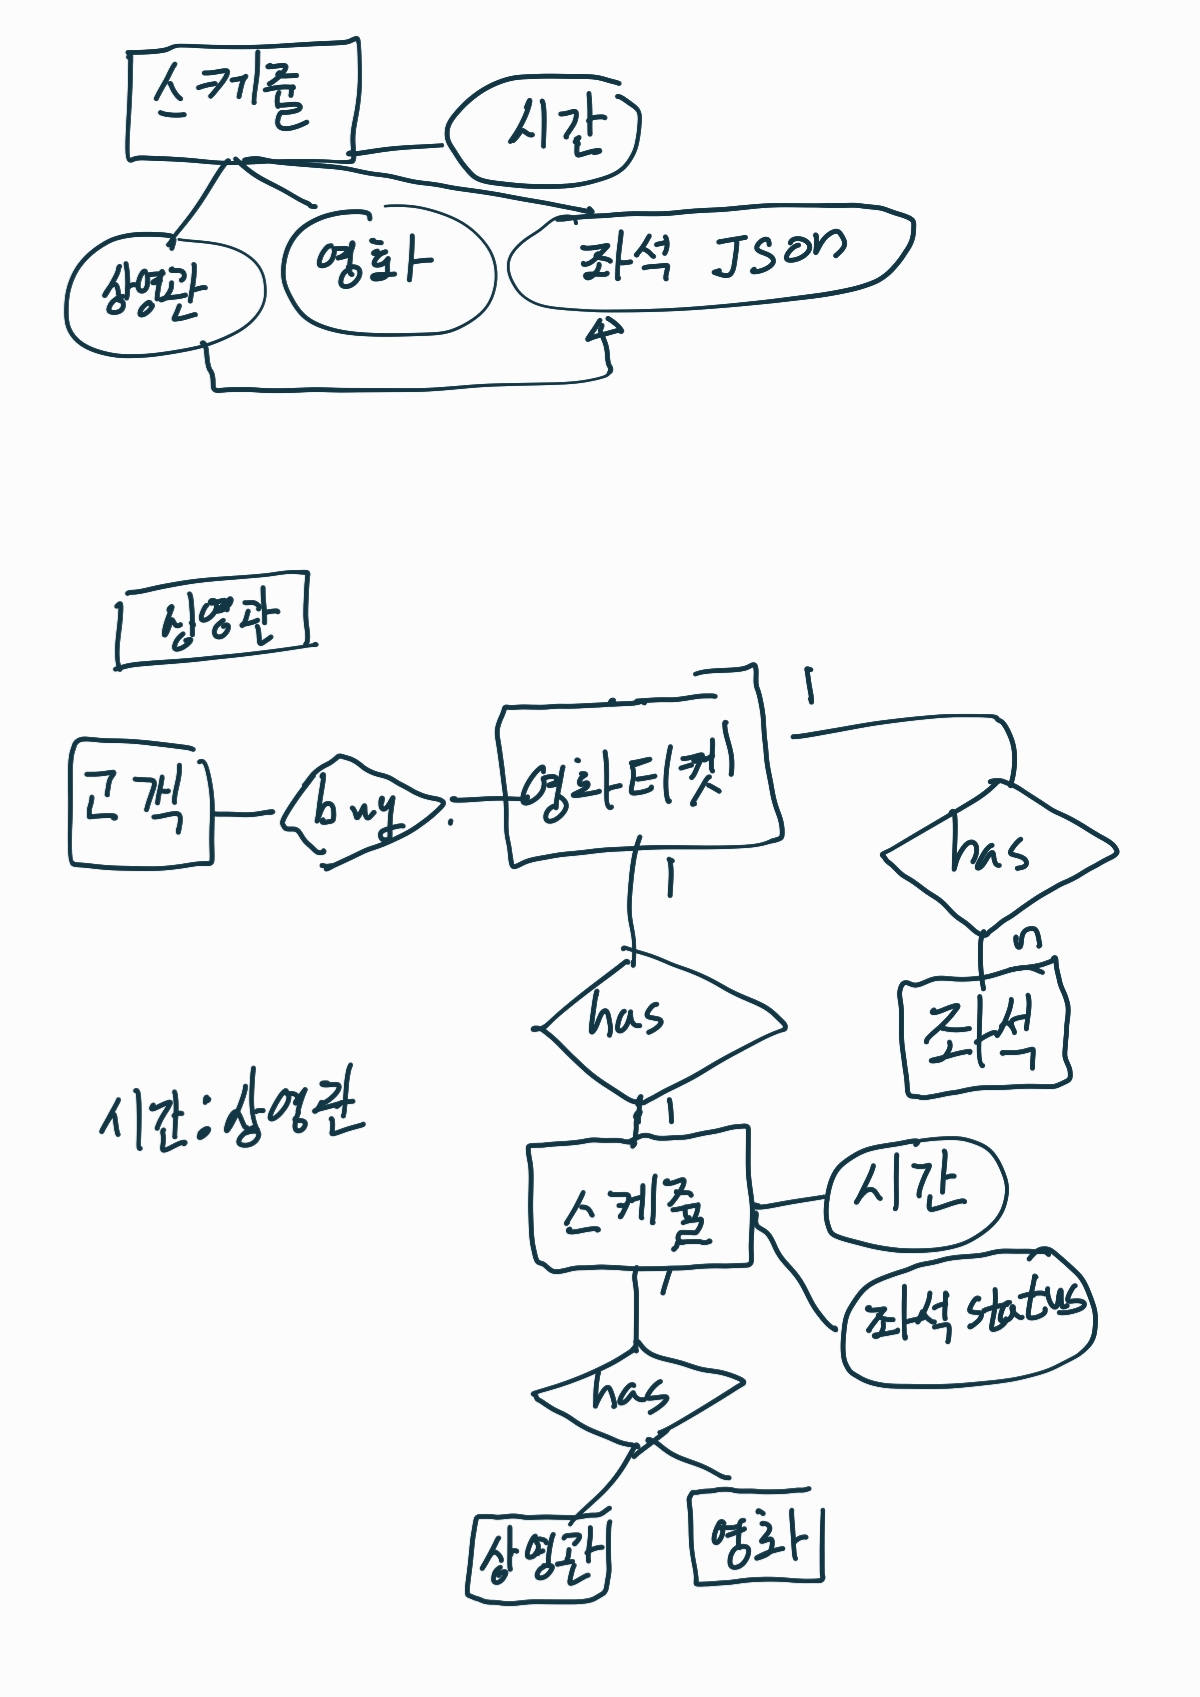 스케줄
시간
상영관
영화
좌석 Json
상영관
고객
buy
영화티켓
1
has
n
좌석
1
has
1
시간:상영관
스케줄
시간
좌석 status
1
has
상영관
영화